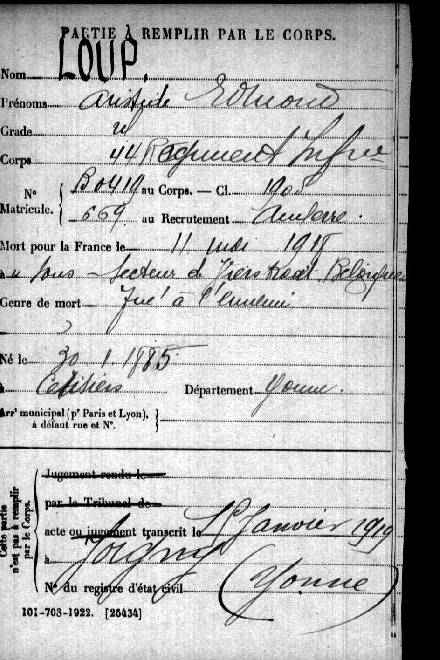 PARTIE À REMPLIR PAR LE CORPS.
Nom LOUP.
Prénoms Aristide Edmond
Grade
Corps 44 Regiment Infrie
N° Matricule. { B0419 au Corps. — Cl. 1905
669 au Recrutement Auxerre.
Mort pour la France le 11 mai 1918
à Secteur d Vierstraat Belgique
Genre de mort Tué à l'ennemi
Né le 30. 1. 1885
à Département Yonne.
Arrt municipal (pr Paris et Lyon), à défaut rue et N°. }
Cette partie n'est pas à remplir par le Corps.
Jugement rendu le
par le Tribunal de
acte ou jugement transcrit le Janvier 1919
à Joigny
N° du registre d'état civil (Yonne)
101-708-1922. [26434]